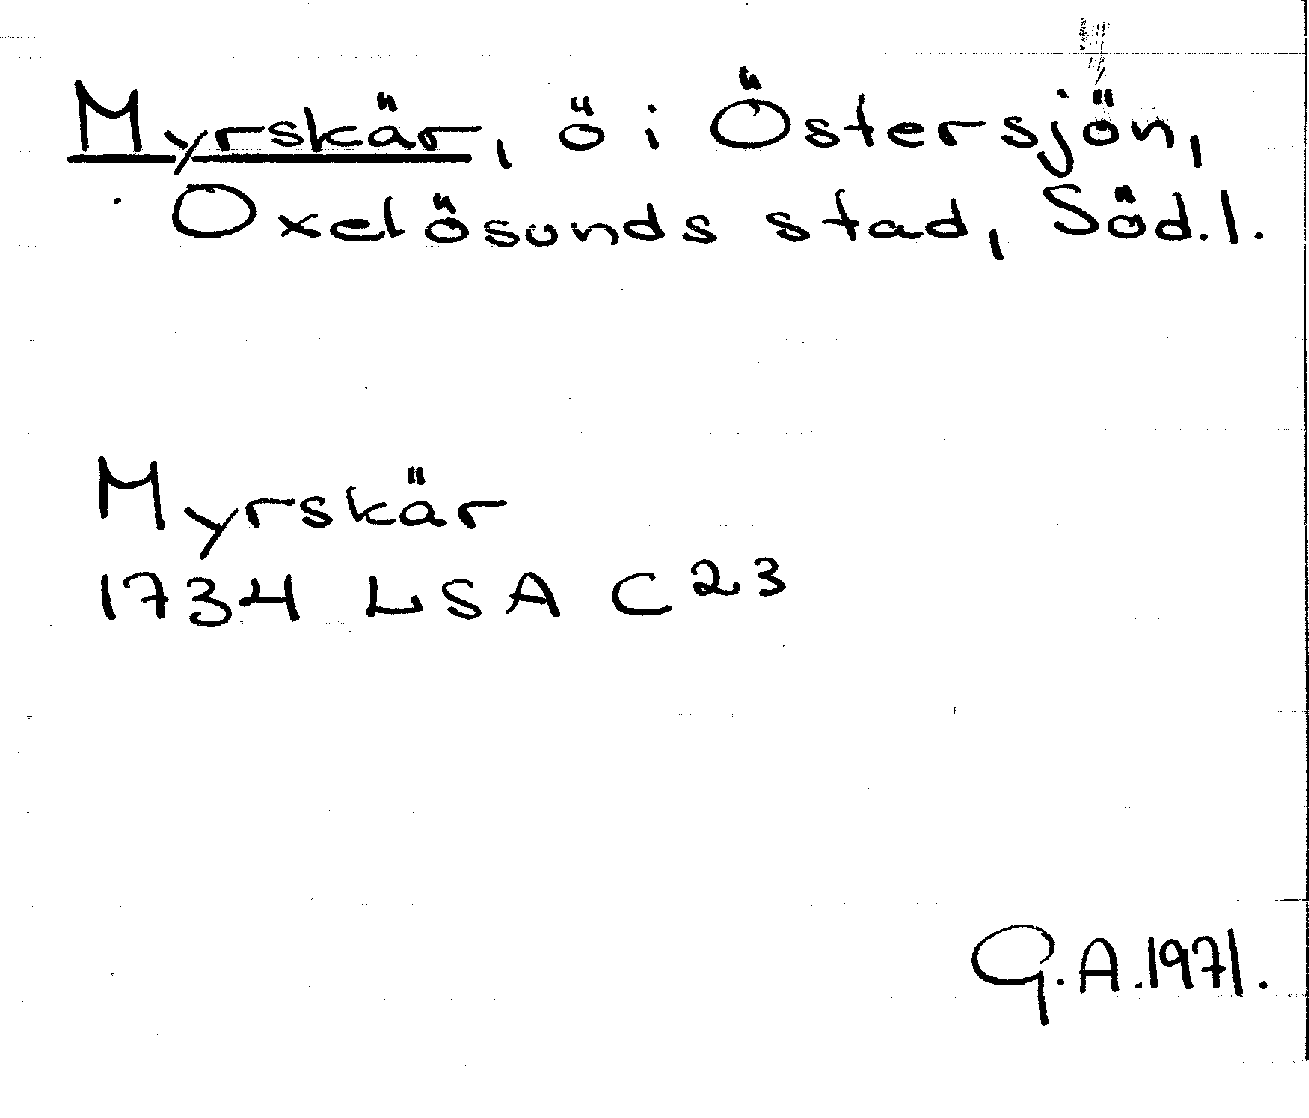 Myrskär, ö i Östersjön,
Oxelösunds stad, Söd.l.
Myrskär
1734 LSA C23
G.A.1971.